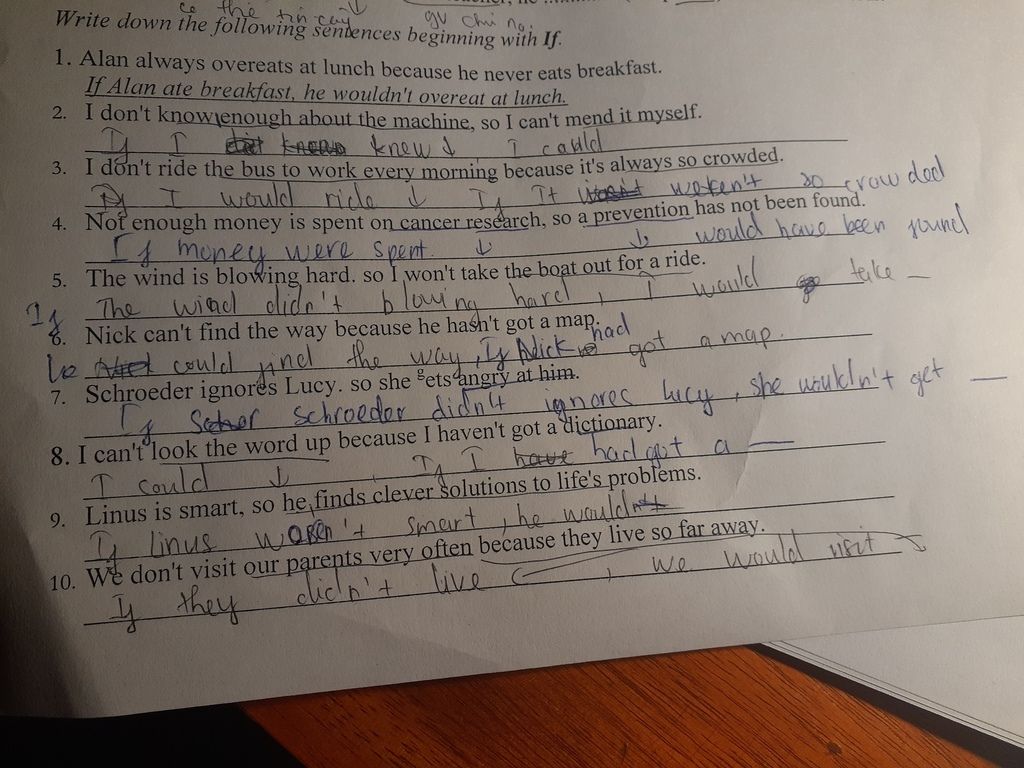 Write down the following sentences beginning with If.
1. Alan always overeats at lunch because he never eats breakfast.
If Alan ate breakfast, he wouldn't overeat at lunch.
2. I don't know enough about the machine, so I can't mend it myself.
If I knew ↓ I could
3. I don't ride the bus to work every morning because it's always so crowded.
If I would ride ↓ If It weren't so crowded
4. Not enough money is spent on cancer research, so a prevention has not been found.
If money were spent ↓ ↓ would have been found
5. The wind is blowing hard. so I won't take the boat out for a ride.
If The wind didn't blowing hard, I would take —
6. Nick can't find the way because he hasn't got a map.
he could find the way, If Nick had got a map.
7. Schroeder ignores Lucy. so she gets angry at him.
If schroeder didn't ignores lucy, she wouldn't get —
8. I can't look the word up because I haven't got a dictionary.
I could ↓ If I had got a —
9. Linus is smart, so he finds clever solutions to life's problems.
If linus weren't smart, he wouldn't
10. We don't visit our parents very often because they live so far away.
If they didn't live , we would visit